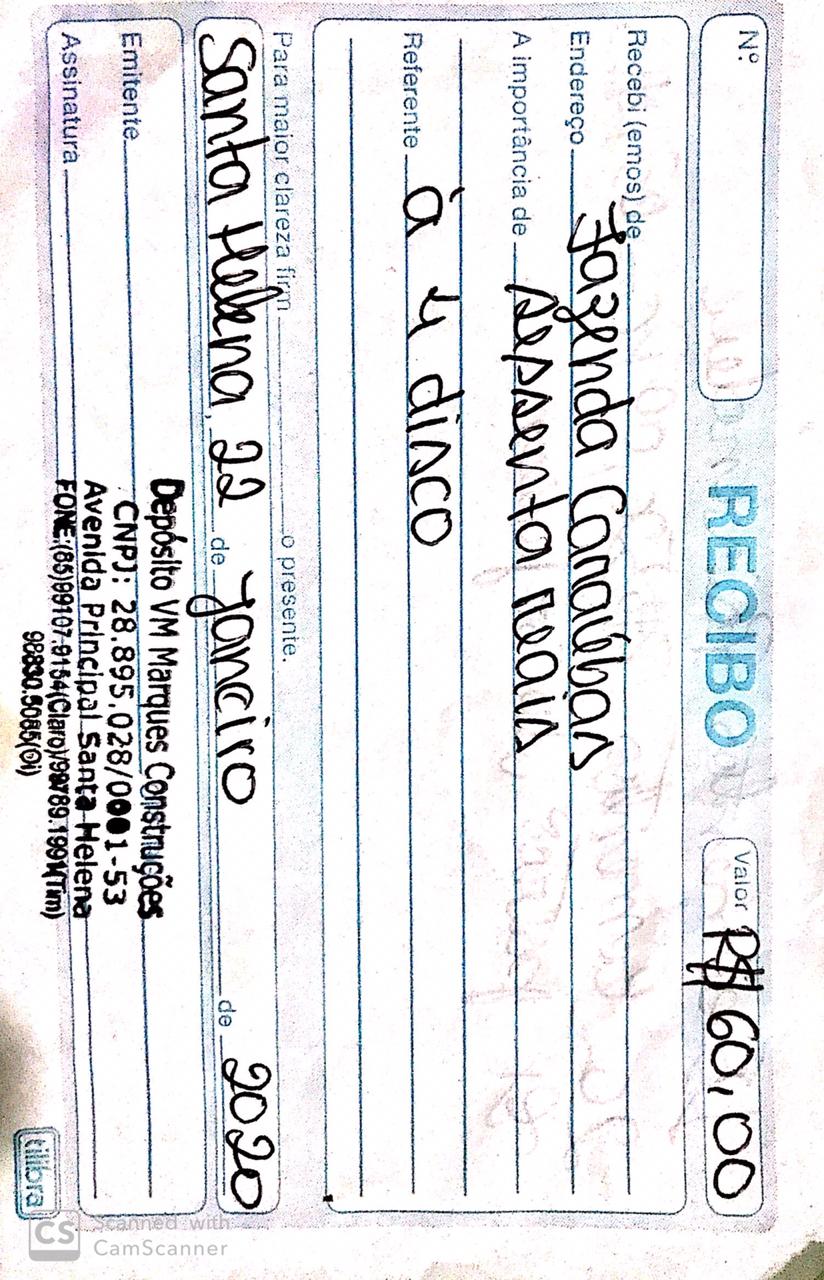 Nº
RECIBO
Valor R$ 60,00
Recebi (emos) de
Endereço Fazenda Canaúbas
A importância de sepsenta reais
Referente à 4 disco
Para maior clareza firm o presente.
Santa Helena, 22 de janeiro de 2020
Emitente
Assinatura
Depósito VM Marques Construções
CNPJ: 28.895.028/0001-53
Avenida Principal Santa Helena
FONE:(85)99107.9154(Claro)/99789.1991(Tim)
98830.5085(Oi)
tilibra
CS Scanned with
CamScanner